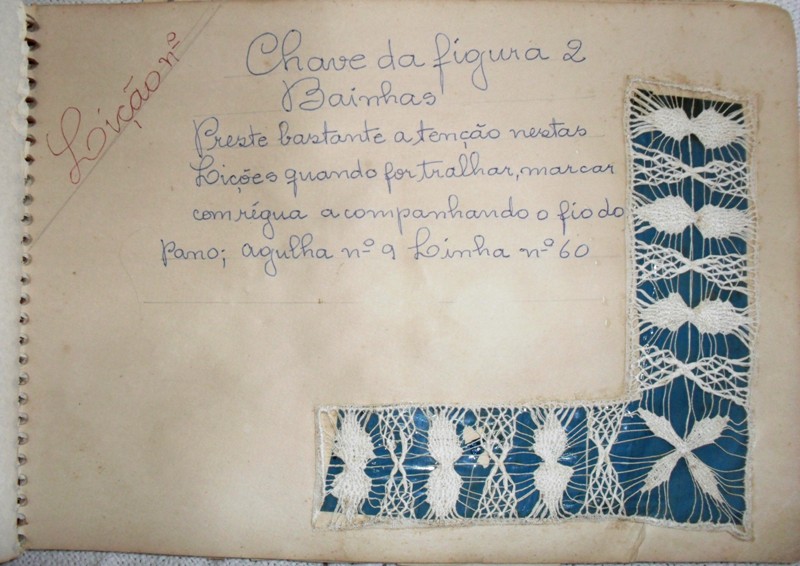 Lição nº
Chave da figura 2
Bainhas
Preste bastante atenção nestas
Lições quando for tralhar, marcar
com régua acompanhando o fio do
pano; agulha nº 9 Linha nº 60